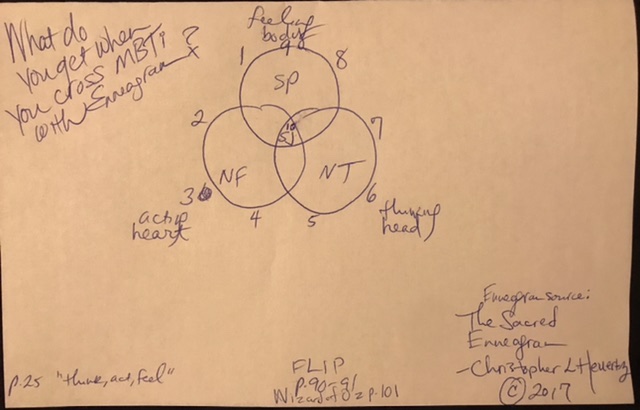 What do
you get when
you cross MBTi ?
with Enneagram
feeling
body
9
1
8
SP
2
7
SJ
NF
NT
3
6
acting
heart
4
5
thinking
head
Enneagram source:
The Sacred
Enneagram
-Christopher L Heuertz
© 2017
p.25 "think, act, feel"
FLIP
p.90-91
Wizard of Oz p.101